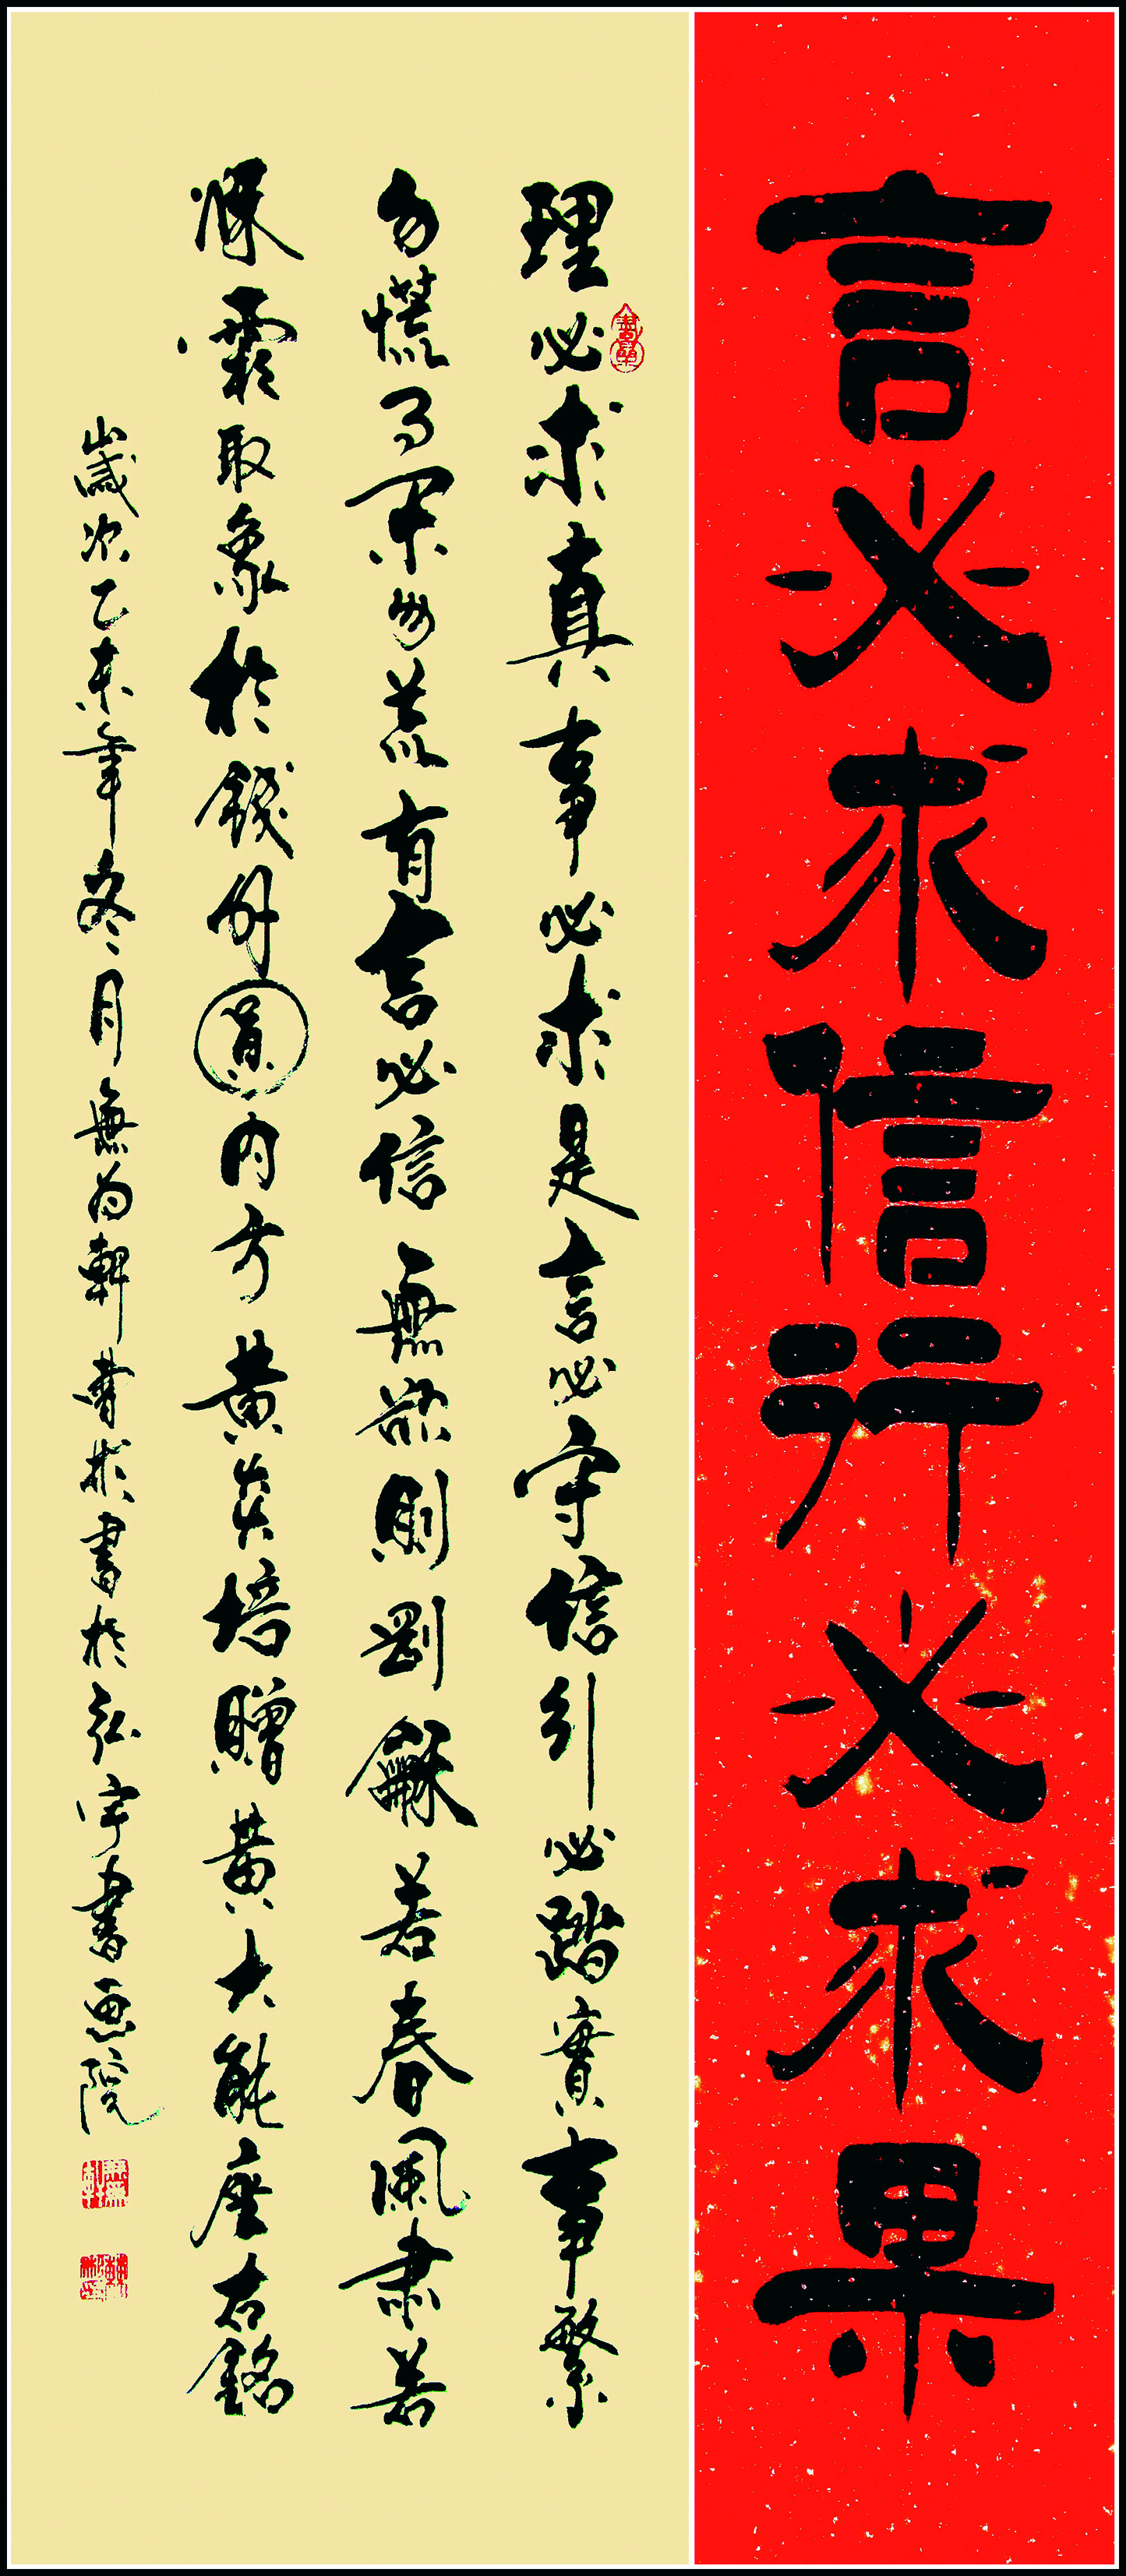 言必求信行必求果
理必求真事必求是言必守信引必踏實事繁
勿慌事閑勿荒有言必信無欲則剛龢若春風肅若
秋霜取象於錢外圓内方黄炎培贈黄大能座右銘
歲次乙未年冬月無為軒曹彬書於弘宇書画院